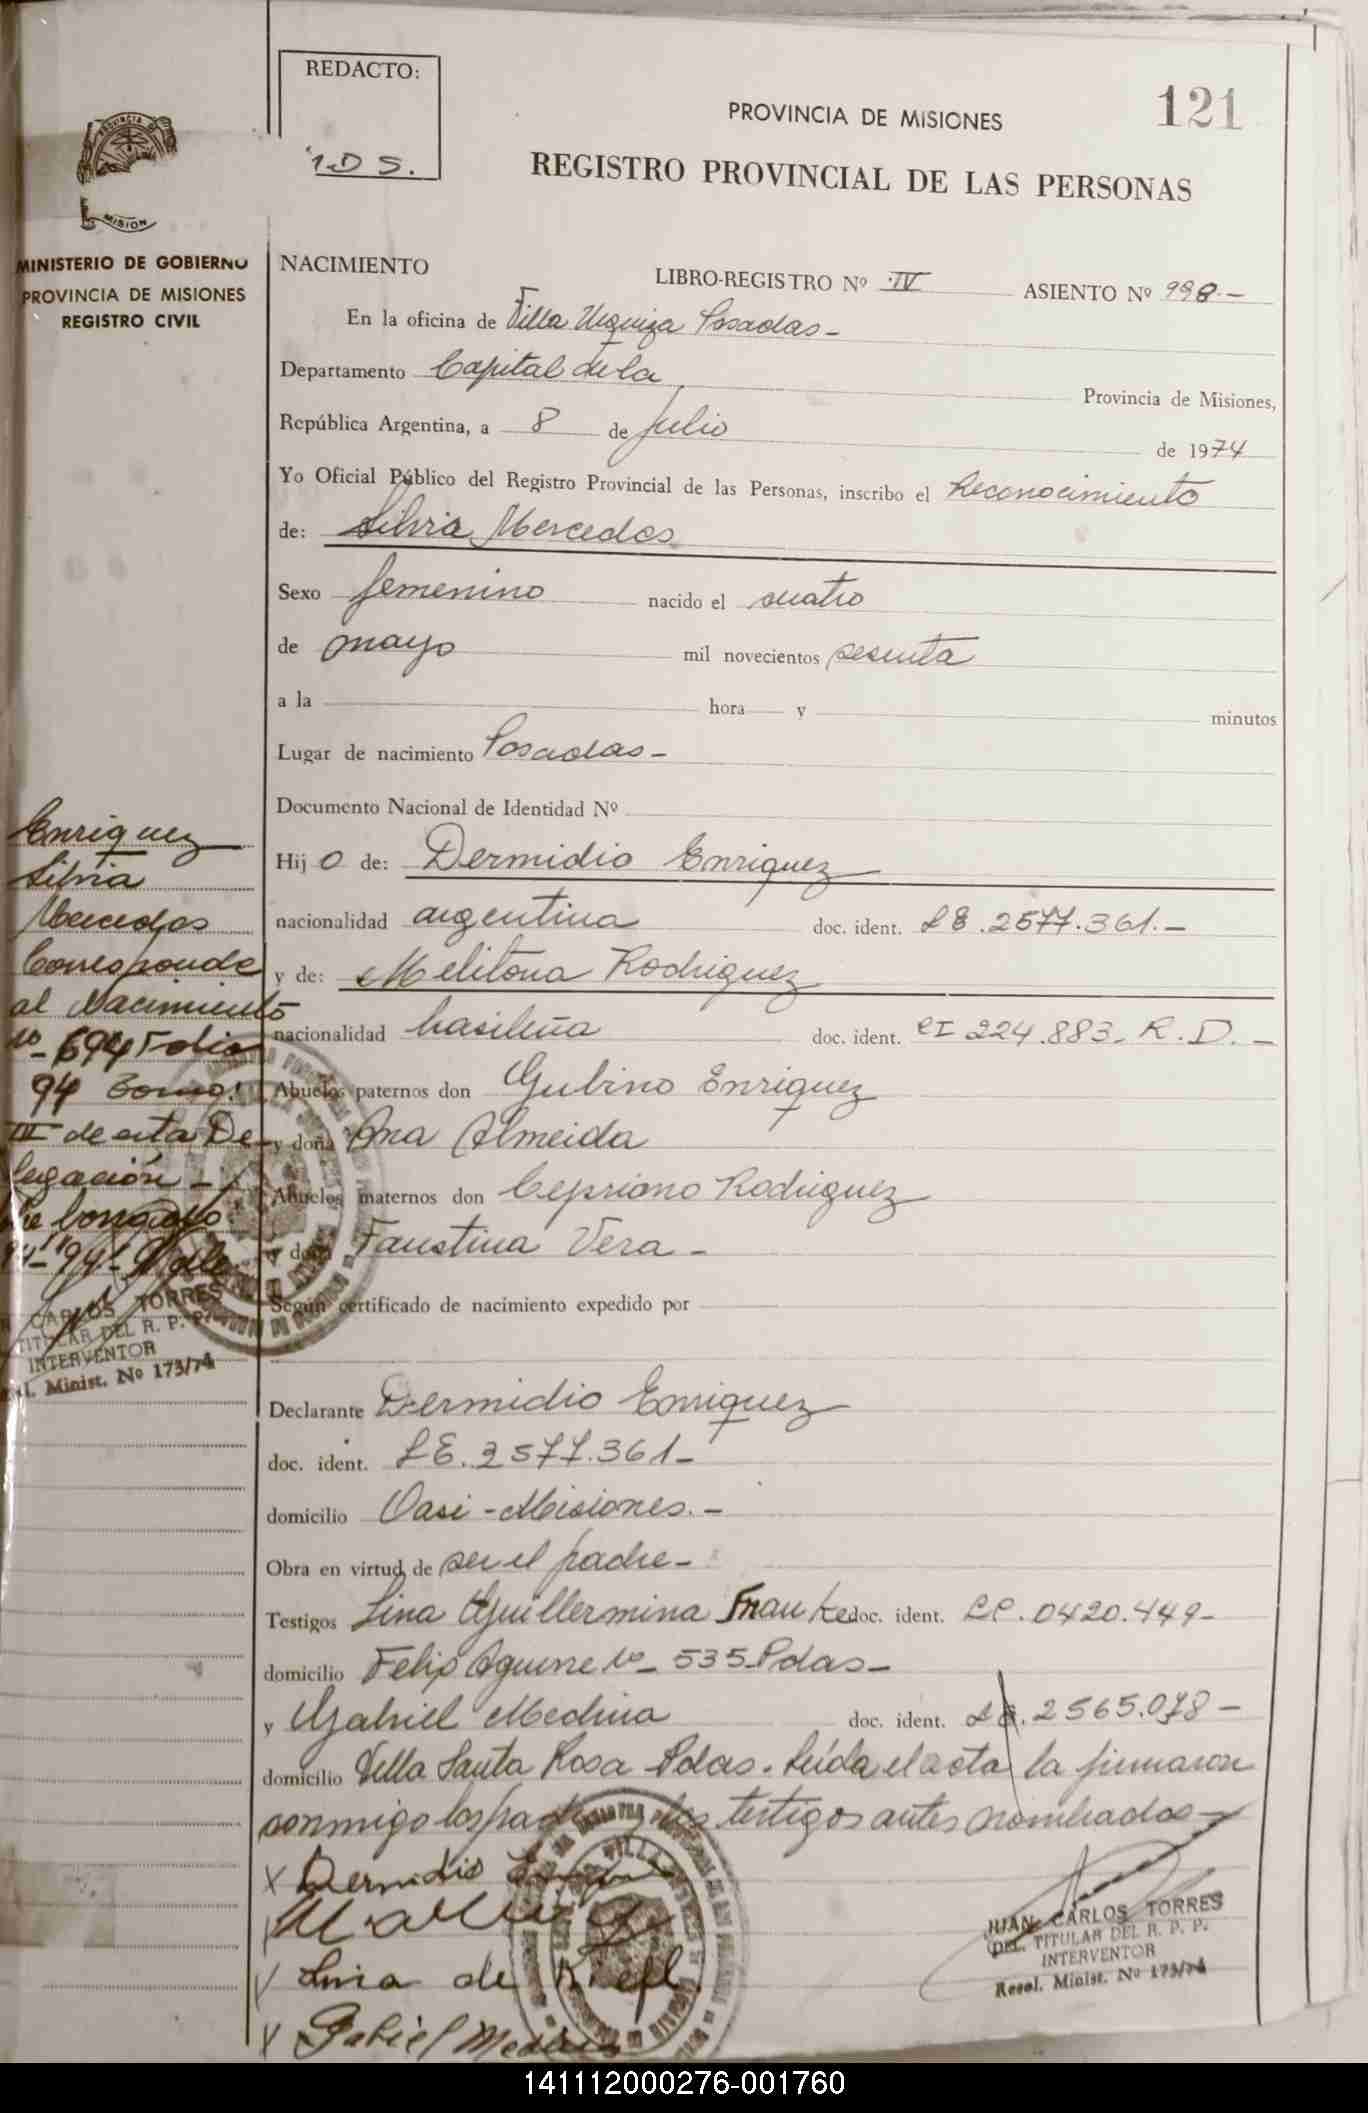 REDACTO:
I.D.S.
121
PROVINCIA DE MISIONES
REGISTRO PROVINCIAL DE LAS PERSONAS
PROVINCIA
MISION
MINISTERIO DE GOBIERNO
PROVINCIA DE MISIONES
REGISTRO CIVIL
NACIMIENTO
LIBRO-REGISTRO Nº IV ASIENTO Nº 998.-
En la oficina de Villa Urquiza Posadas-
Departamento Capital de la Provincia de Misiones,
República Argentina, a 8 de Julio de 1974
Yo Oficial Público del Registro Provincial de las Personas, inscribo el Reconocimiento
de: Silvia Mercedes
Sexo femenino nacido el cuatro
de mayo mil novecientos sesenta
a la hora y minutos
Lugar de nacimiento Posadas-
Documento Nacional de Identidad Nº
Hij o de: Dermidio Enriquez
nacionalidad argentina doc. ident. LE.2577.361.-
y de: Melitona Rodriguez
nacionalidad brasileña doc. ident. CI 224.883. R.D.-
Abuelos paternos don Gubino Enriquez
y doña Ana Almeida
Abuelos maternos don Cepriano Rodriguez
y doña Faustina Vera-
Según certificado de nacimiento expedido por
Declarante Dermidio Enriquez
doc. ident. LE.2577.361-
domicilio Oasi-Misiones.-
Obra en virtud de ser el padre-
Testigos Lina Guillermina Franke doc. ident. LC.0420.449-
domicilio Felix Aguirre Nº- 535 Pdas-
y Gabriel Medina doc. ident. LE.2565.078-
domicilio Villa Santa Rosa Pdas. Leída el acta la firmaron
conmigo los y los testigos antes nombrados-
X Dermidio
X de
X Gabriel Medina
JUAN CARLOS TORRES
DEL. TITULAR DEL R. P. P.
INTERVENTOR
Resol. Minist. Nº 173/74
Enriquez
Silvia
Mercedes
Corresponde
al Nacimiento
Nº- 694 Folio
94 Tomo:
III de esta De-
legación-
CARLOS TORRES
TITULAR DEL R. P. P.
INTERVENTOR
Minist. Nº 173/74
141112000276-001760